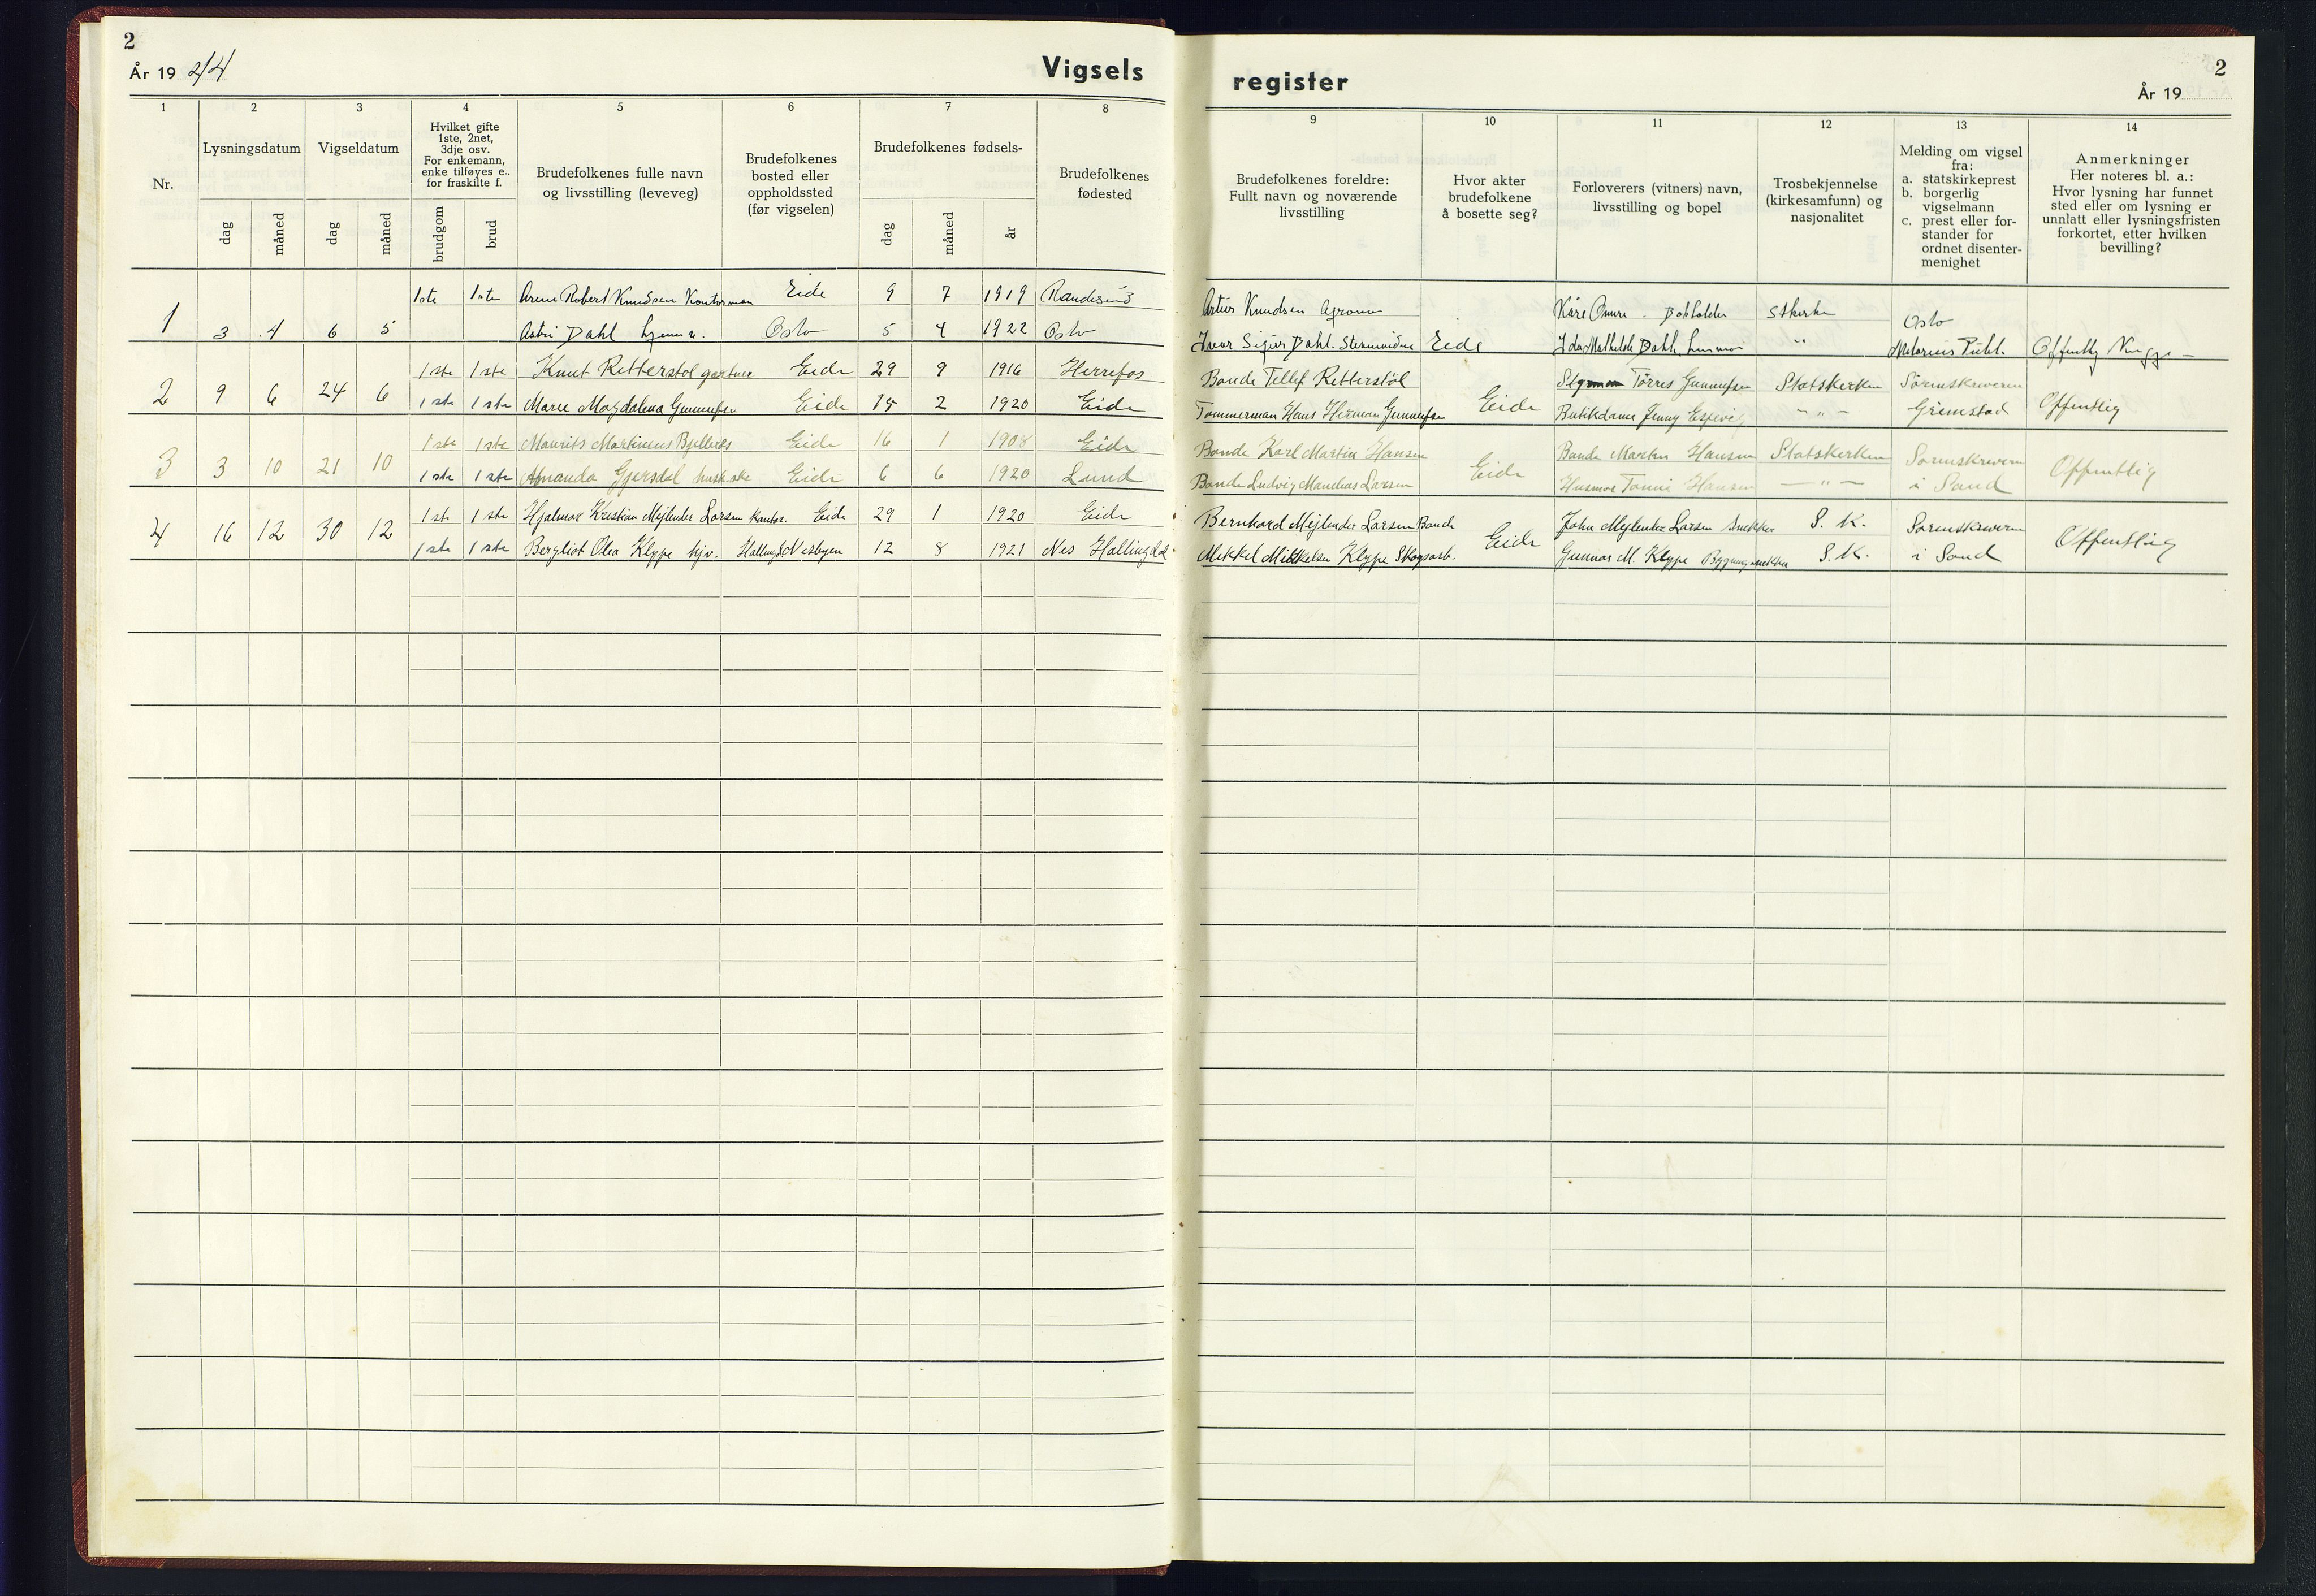 2
År 19 44
Vigsels
1 2 3 4 5 6 7 8
Nr.
Lysningsdatum
Vigseldatum
Hvilket gifte
1ste, 2net,
3dje osv.
For enkemann,
enke tilføyes e..
for fraskilte f.
Brudefolkenes fulle navn
og livsstilling (leveveg)
Brudefolkenes
bosted eller
oppholdssted
(før vigselen)
Brudefolkenes fødsels-
Brudefolkenes
fødested
dag måned dag måned brudgom brud dag måned år
1ste 1ste Arne Robert Knudsen Kontorman Eide 9 7 1919 Randesund
1 3 4 6 5 Astri Dahl hjemm. Oslo 5 4 1922 Oslo
1 ste 1 ste Knut Retterstøl gartner Eide 29 9 1916 Herrefos
2 9 6 24 6 1 ste 1 ste Marie Magdalena Gunnufsen Eide 15 2 1920 Eide
1 ste 1 ste Maurits Martinius Eide 16 1 1908 Eide
3 3 10 21 10 1 ste 1 ste Amanda Gjersdal Eide 6 6 1920 Lund
1 ste 1 ste Hjalmar Kristian Mejlender Larsen kontor. Eide 29 1 1920 Eide
4 16 12 30 12 1 ste 1 ste Bergliot Olea Klype hjv. Nesbyen 12 8 1921 Nes Hallingdal
register
2
År 19
9 10 11 12 13 14
Brudefolkenes foreldre:
Fullt navn og noværende
livsstilling
Hvor akter
brudefolkene
å bosette seg?
Forloverers (vitners) navn,
livsstilling og bopel
Trosbekjennelse
(kirkesamfunn) og
nasjonalitet
Melding om vigsel
fra:
a. statskirkeprest
b. borgerlig
vigselmann
c. prest eller for-
stander for
ordnet disenter-
menighet
Anmerkninger
Her noteres bl. a.:
Hvor lysning har funnet
sted eller om lysning er
unnlatt eller lysningsfristen
forkortet, etter hvilken
bevilling?
Artur Knudsen Agronom Kåre Omre. Bokholder Stkirke Oslo
Ivar Sigur Dahl. Eide Ida Mathilde Dahl husmor " Notarius Publ. Offentlig
Bonde Tellef Retterstøl Torres Gunnufsen Statskirken Sørenskriveren
Tømmerman Hans Herman Gunnufsen Eide Butikdame Jenny Espevig - " - Grimstad Offentlig
Bonde Karl Martin Hansen Bonde Martin Hansen Statskirken Sorenskriveren
Bonde Ludvig Mandius Larsen Eide Husmor Tomine Hansen - " - i Sand Offentlig
Bernhard Mejlender Larsen Bonde John Mejlender Larsen Snekker S. K. Sorenskriveren
Mikkel Mikkelsen Klype Skogsarb. Eide Gunnar M. Klype Bygningsnekker S. K. i Sand Offentlig